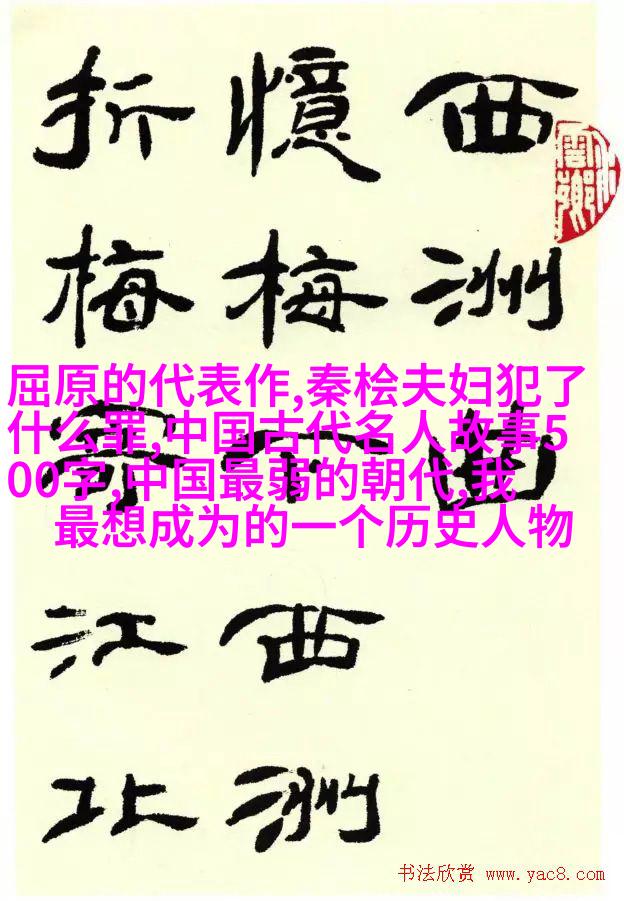 西洲曲
憶梅下西洲
折梅寄江北
屈原的代表作,秦桧夫妇犯了
什么罪,中国古代名人故事5
00字,中国最弱的朝代,我
最想成为的一个历史人物
书法欣赏 www.yac8.com